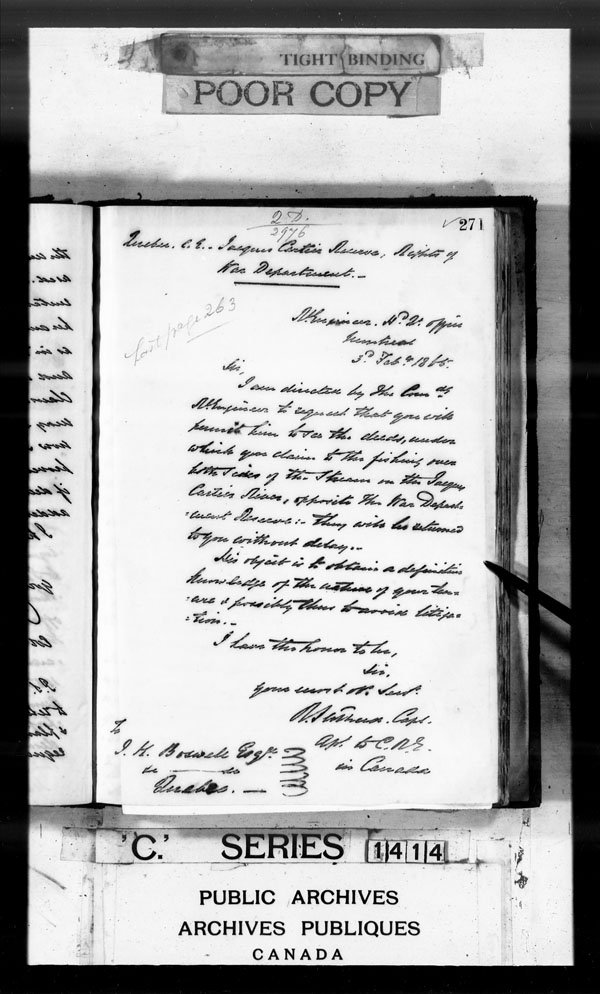 TIGHT BINDING
POOR COPY
2 D.
2976
271
Quebec. C.E. - Jacques Cartier Reserve, Rights of
War Department. -
last page 263
Rl. Engineer. Hd. Qr. Office
Montreal
3d. Feby. 1865.
Sir,
I am directed by the Comdg.
Rl. Engineer to request that you will
permit him to see the deeds, under
which you claim to the fishing over
both sides of the Stream on the Jacques
Cartier River, opposite the War Depart-
-ment Reserve: - they will be returned
to you without delay. -
His object is to obtain a definitive
knowledge of the nature of your ten-
-ure & possibly thus to avoid litiga-
-tion. -
I have the honor to be,
Sir,
your most ob. Servt.
Capt.
to C.R.E.
in Canada
To
J. K. Boswell Esqre.
&c &c
Quebec. -
'C.' SERIES 1414
PUBLIC ARCHIVES
ARCHIVES PUBLIQUES
CANADA